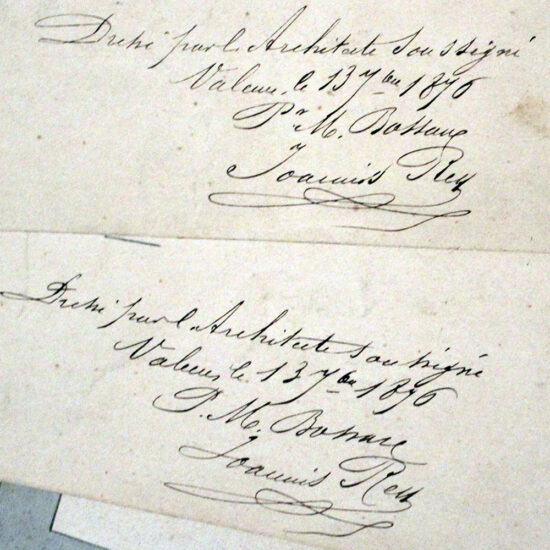 Dressé par l'Architecte soussigné
Valence le 13 7bre 1876
Pr M. Bossan
Joannis Rey
Dressé par l'Architecte soussigné
Valence le 13 7bre 1876
P. M. Bossan
Joannis Rey